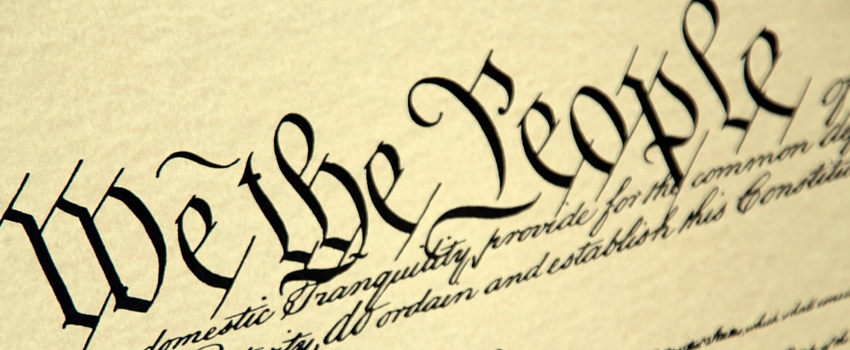 We the People of
domestic Tranquility, provide for the common
do ordain and establish this
which shall